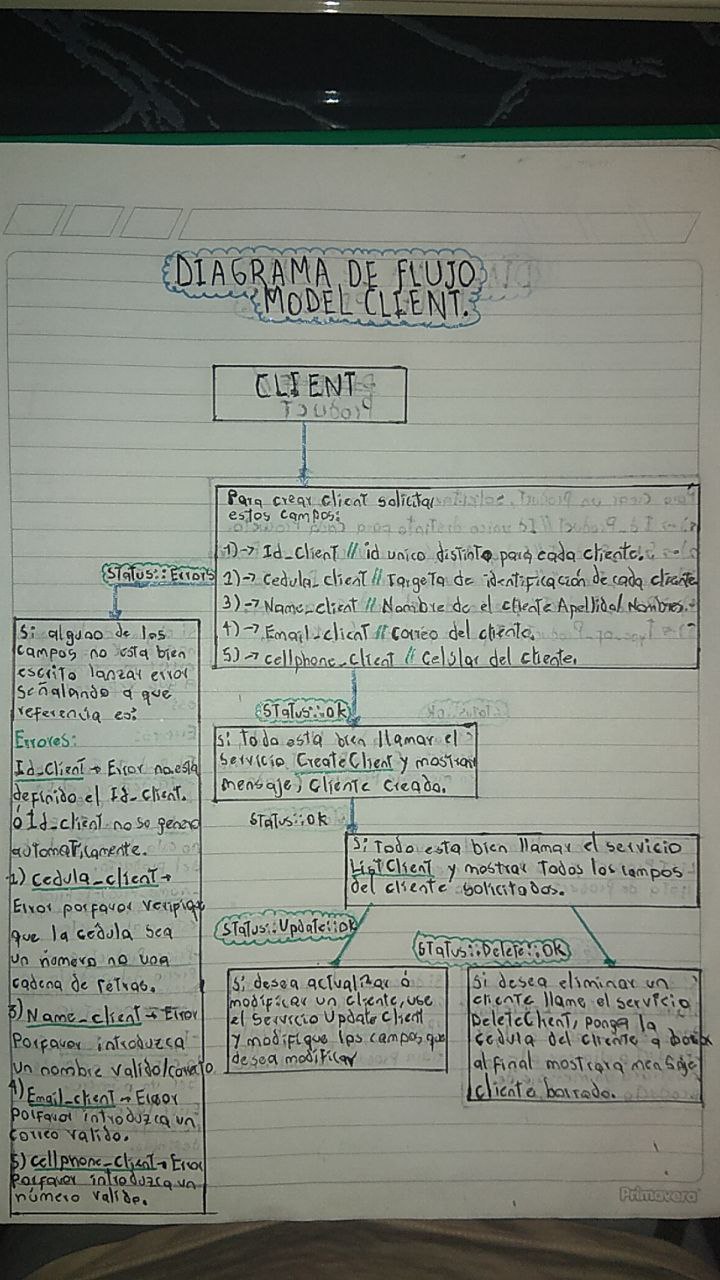 DIAGRAMA DE FLUJO
MODEL CLIENT.
CLIENT
Para crear client solicitar
estos campos:
1)→ Id_Client // id unico distinto para cada cliente.
2)→ Cedula_client // Targeta de identificación de cada cliente
3)→ Name_client // Nombre de el cliente Apellido/Nombres.
4)→ Email_client // Correo del cliente.
5)→ cellphone_client // Celular del cliente.
Status::Errors
Si alguno de los
campos no esta bien
escrito lanzar error
señalando a que
referencia es:
Errores:
Id_Client → Error no esta
definido el Id_client.
ó Id_client no se genero
automaticamente.
2) Cedula_client →
Error porfavor verifique
que la cedula sea
un número no una
cadena de letras.
3) Name_client → Error
Porfavor introduzca
un nombre valido/correcto
4) Email_client → Error
Porfavor introduzca un
correo valido.
5) cellphone_client → Error
Porfavor introduzca un
número valido.
Status::ok
Si todo esta bien llamar el
servicio CreateClient y mostrar
mensaje, Cliente Creado.
Status::ok
Si todo esta bien llamar el servicio
ListClient y mostrar Todos los campos
del cliente solicitados.
Status::Update::ok
Si desea actualizar ó
modificar un cliente, use
el servicio Update Client
y modifique los campos que
desea modificar
Status::Delete::OK
Si desea eliminar un
cliente llame el servicio
DeleteClient, ponga la
cedula del cliente a borrar
al final mostrara mensaje
cliente borrado.
Primavera